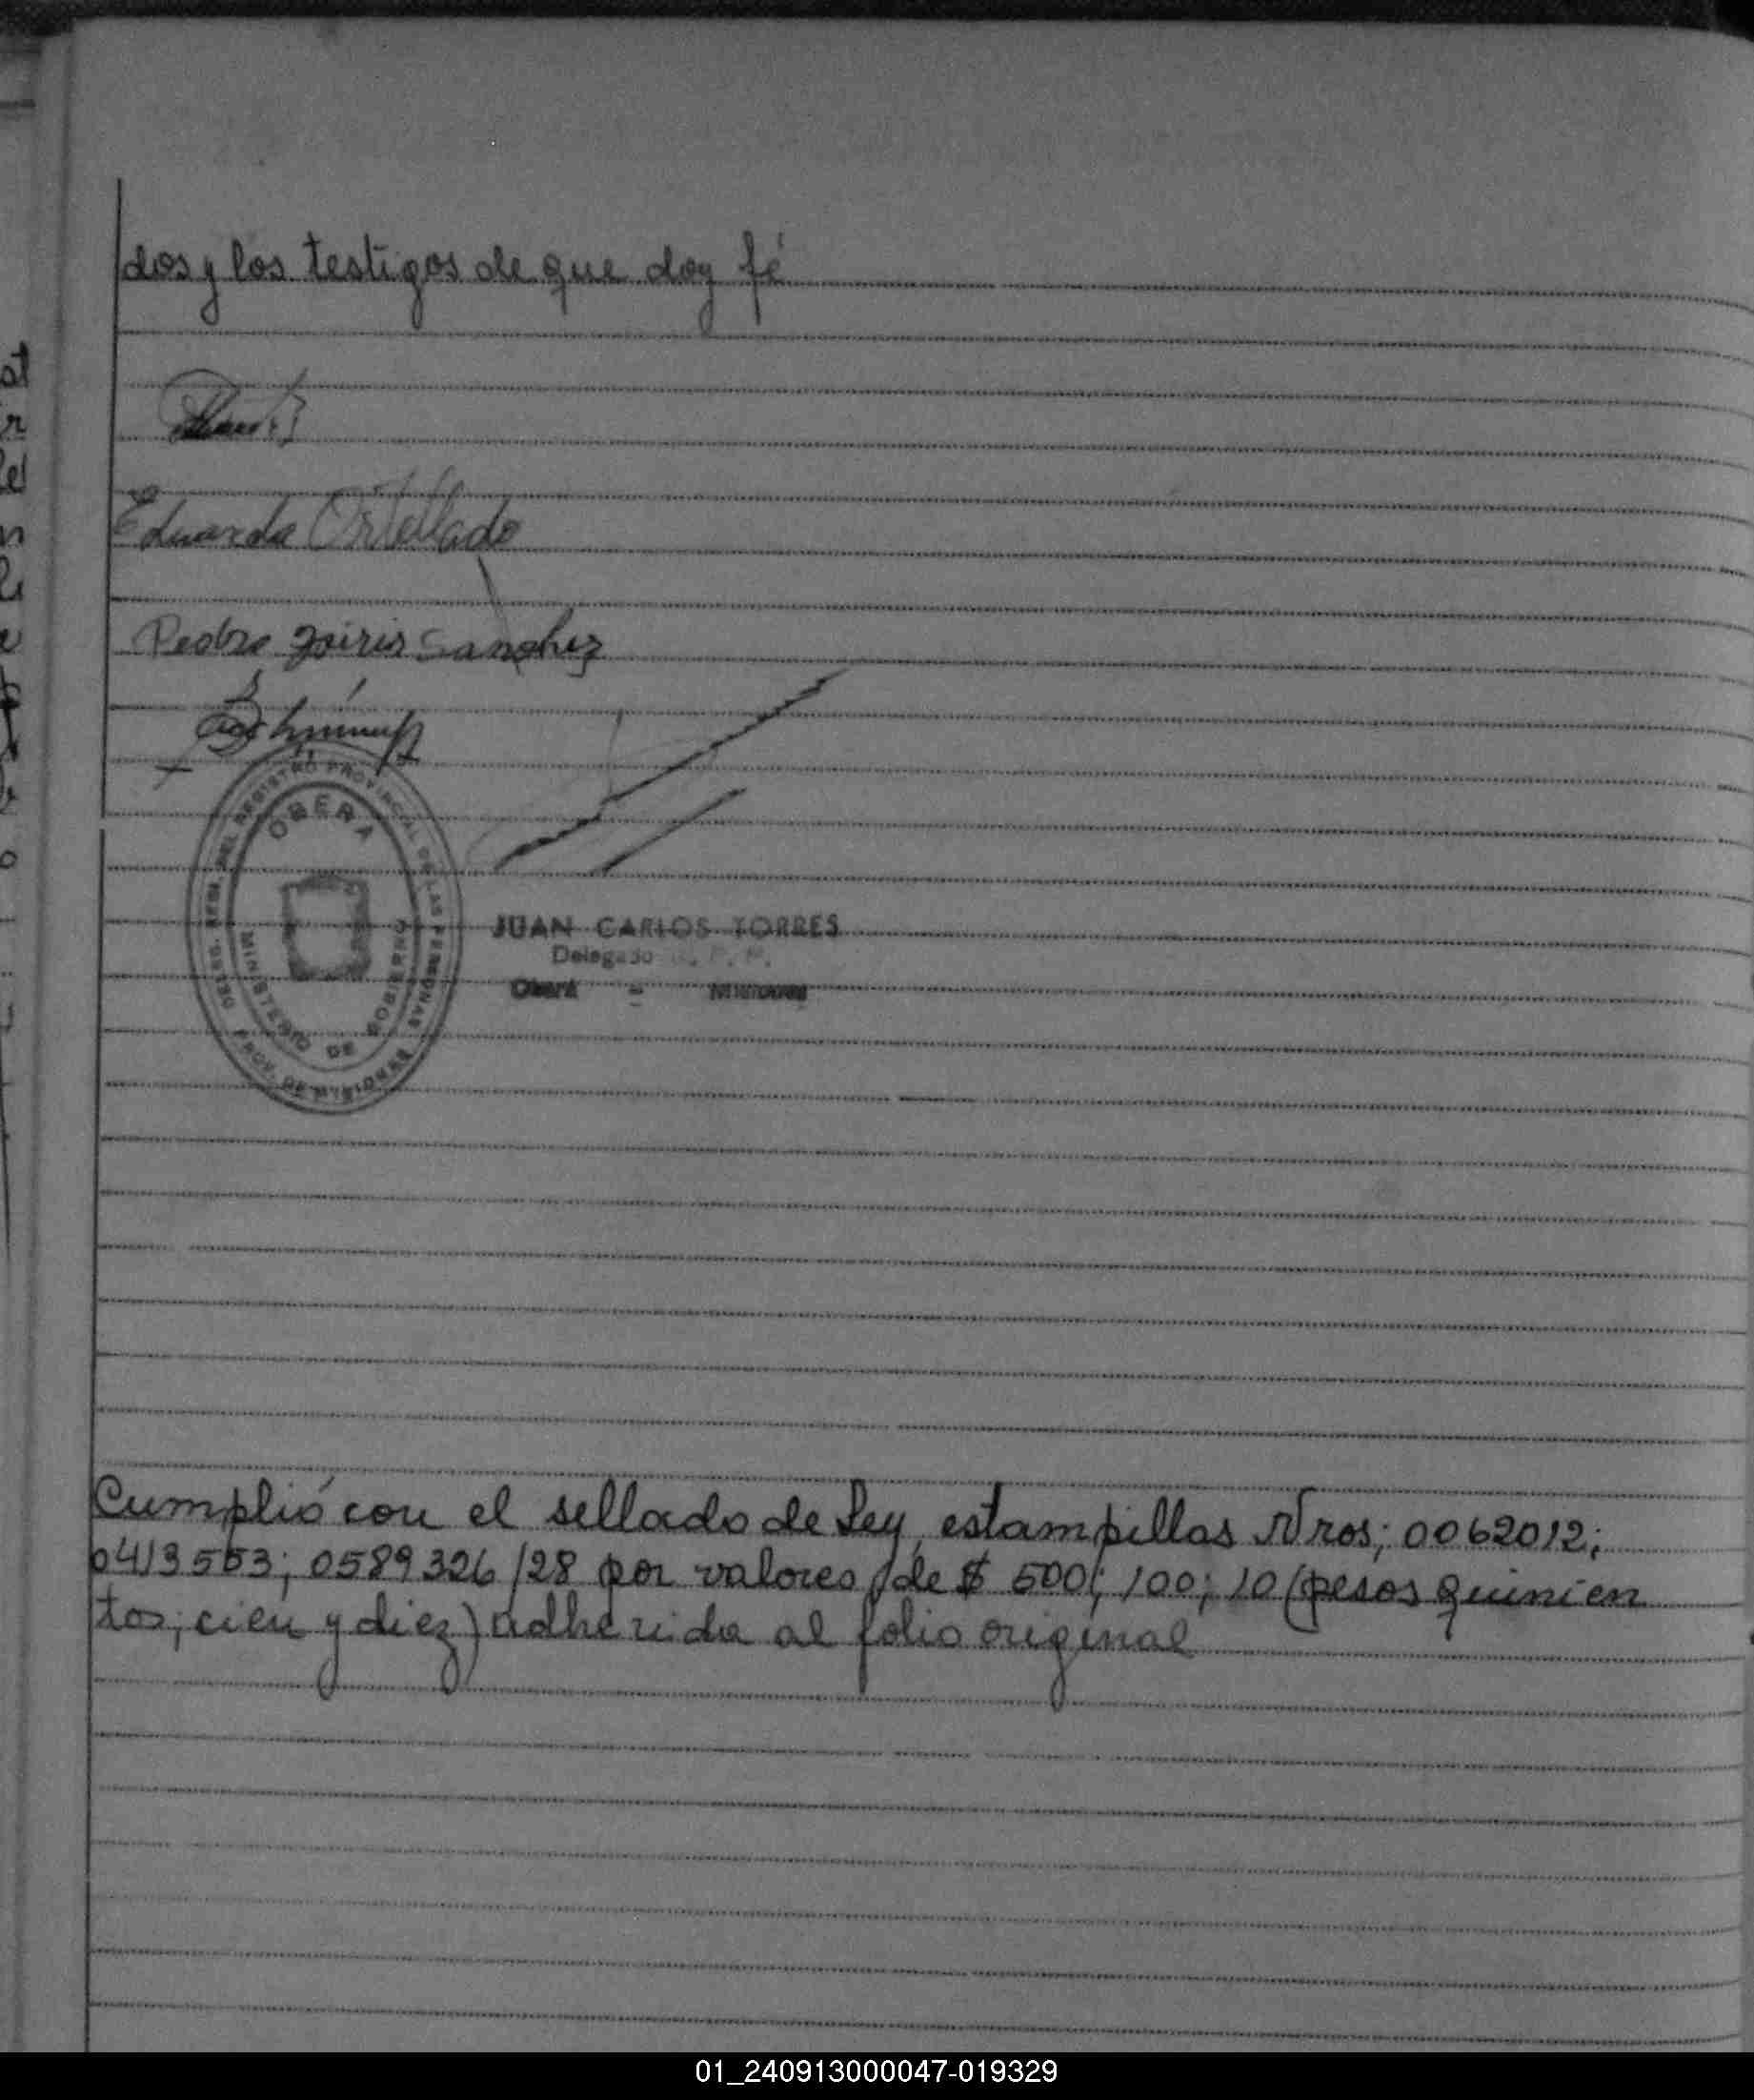 dos y los testigos de que doy fé
Eduardo Ortellado
Pedro Sanchez
DELEG. REGN. DEL REGISTRO PROVINCIAL DE LAS PERSONAS
OBERA
MINISTERIO DE GOBIERNO
PROV. DE MISIONES
JUAN CARLOS TORRES
Delegado R. P. P.
Oberá - Misiones
Cumplió con el sellado de Ley, estampillas Nros; 0062012;
0413553; 0589326/28 por valores de $ 500; 100; 10 (pesos quinien
tos; cien y diez) adherida al folio original
01_240913000047-019329